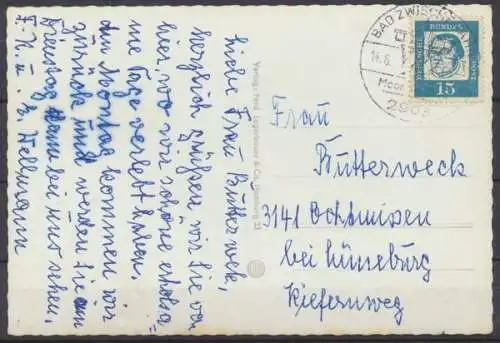 Liebe Frau Butterweck,
herzlich grüßen wir Sie von
hier, wo wir schöne erholsa-
me Tage verlebt haben.
Am Montag kommen wir
zurück und werden Sie am
Dienstag dann bei uns sehen.
F. K. u. E. Hellmann
BAD ZWISCH
14.6.
Moor
2903
DEUTSCHE
BUNDESPOST
15
Frau
Butterweck
3141 Ochtmissen
bei Lüneburg
Kiefernweg